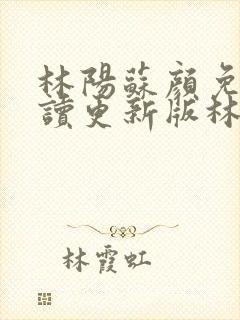 林陽蘇顔免
讀更新版林
林霞虹